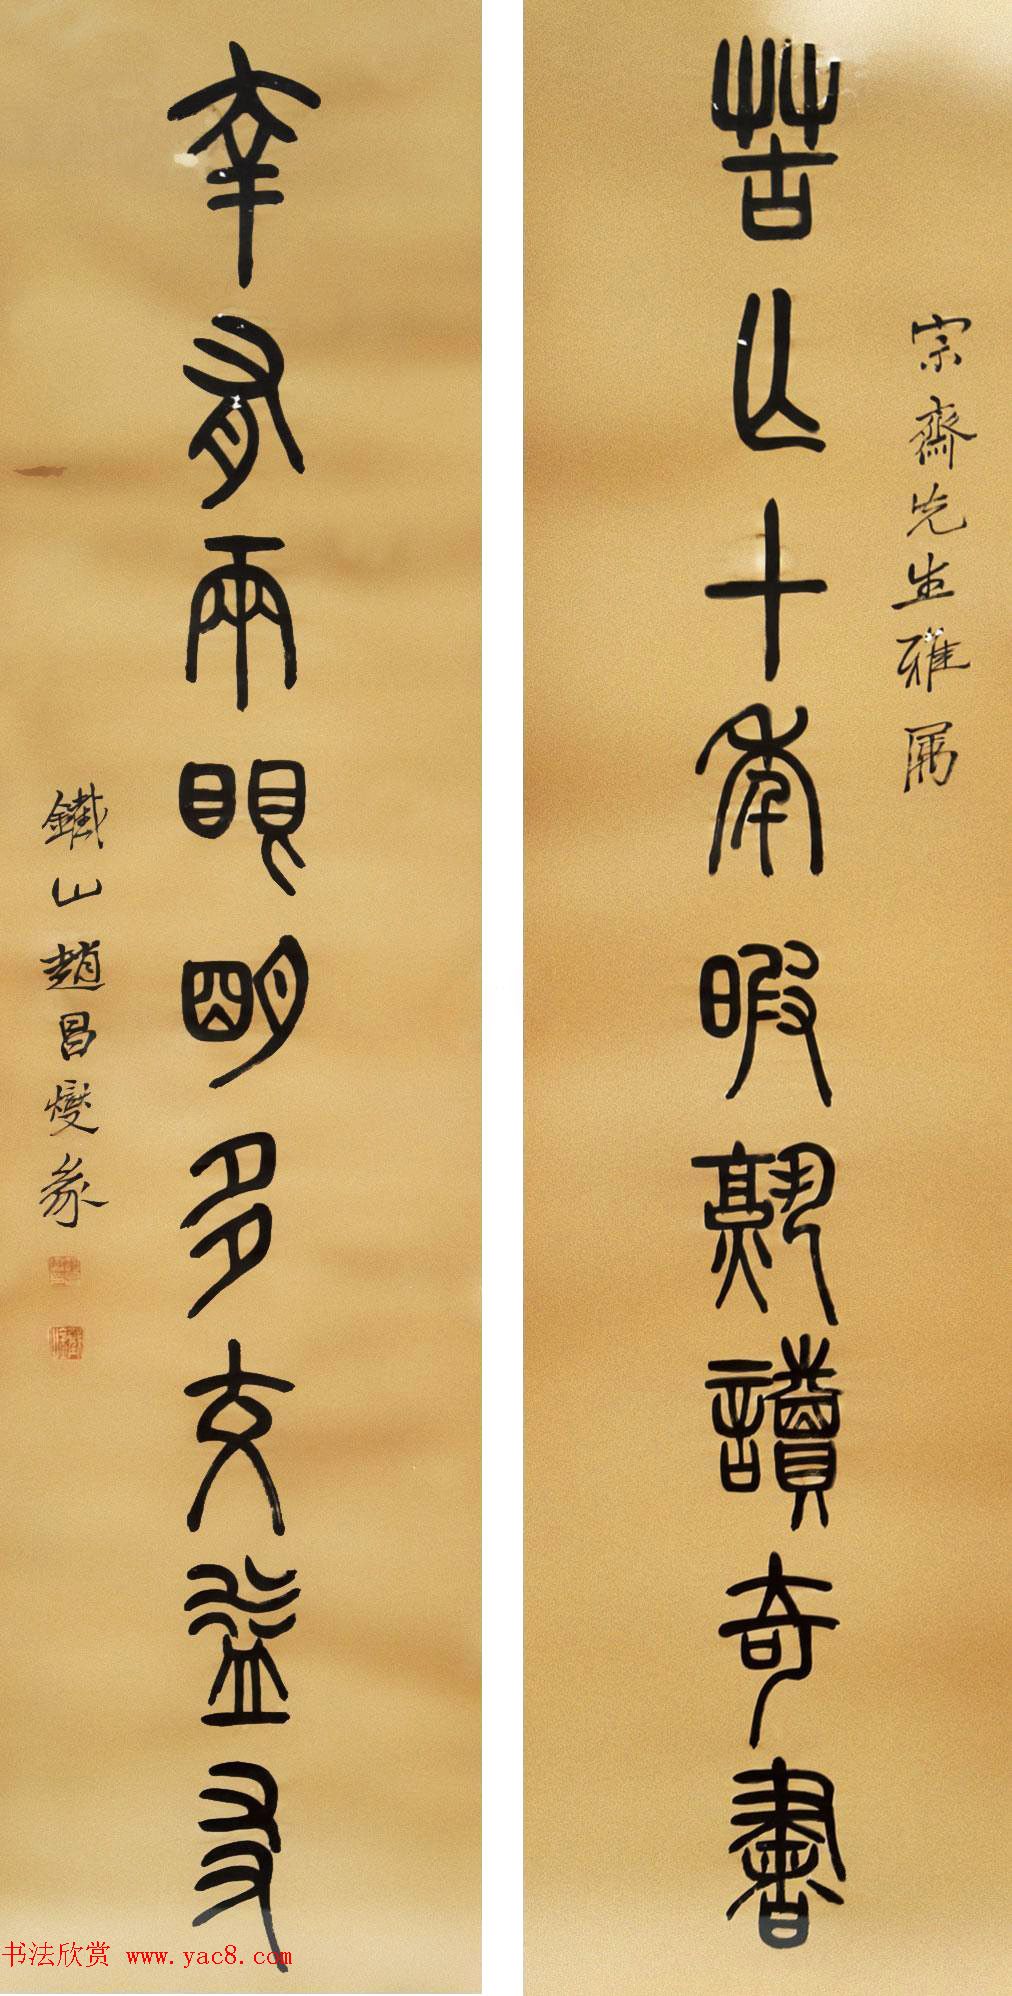 宗齋先生雅属
苦亾十年暇孰讀奇書
幸有兩眼明多交益友
鐵山趙昌燮彖
书法欣赏 www.yac8.com